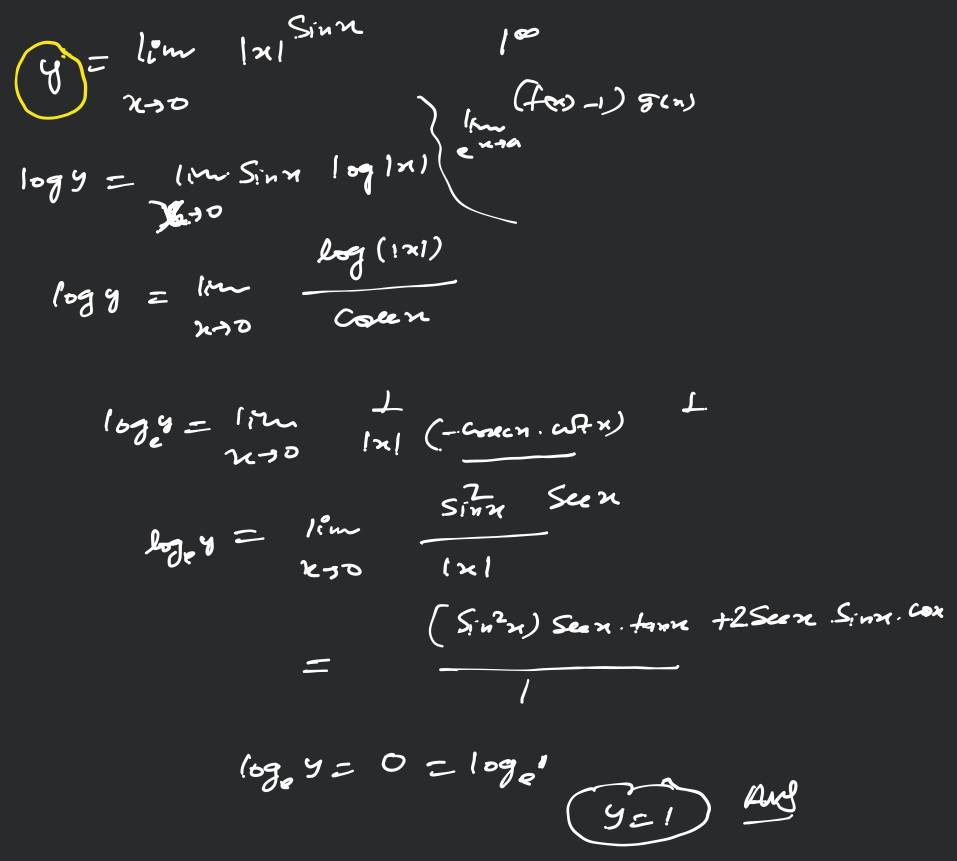 y = lim x→0 |x|^Sinx
1^∞
e^lim x→a (f(x) -1) g(x)
log y = lim x→0 Sinx log|x|
log y = lim x→0 log(|x|) / Cosecx
log_e y = lim x→0 1/|x| (-Cosecx . cotx) 1
log_e y = lim x→0 sin²x Secx / |x|
= (Sin²x) Secx . tanx +2Secx . Sinx . Cosx / 1
log_e y = 0 = log_e 1
y = 1 Ans